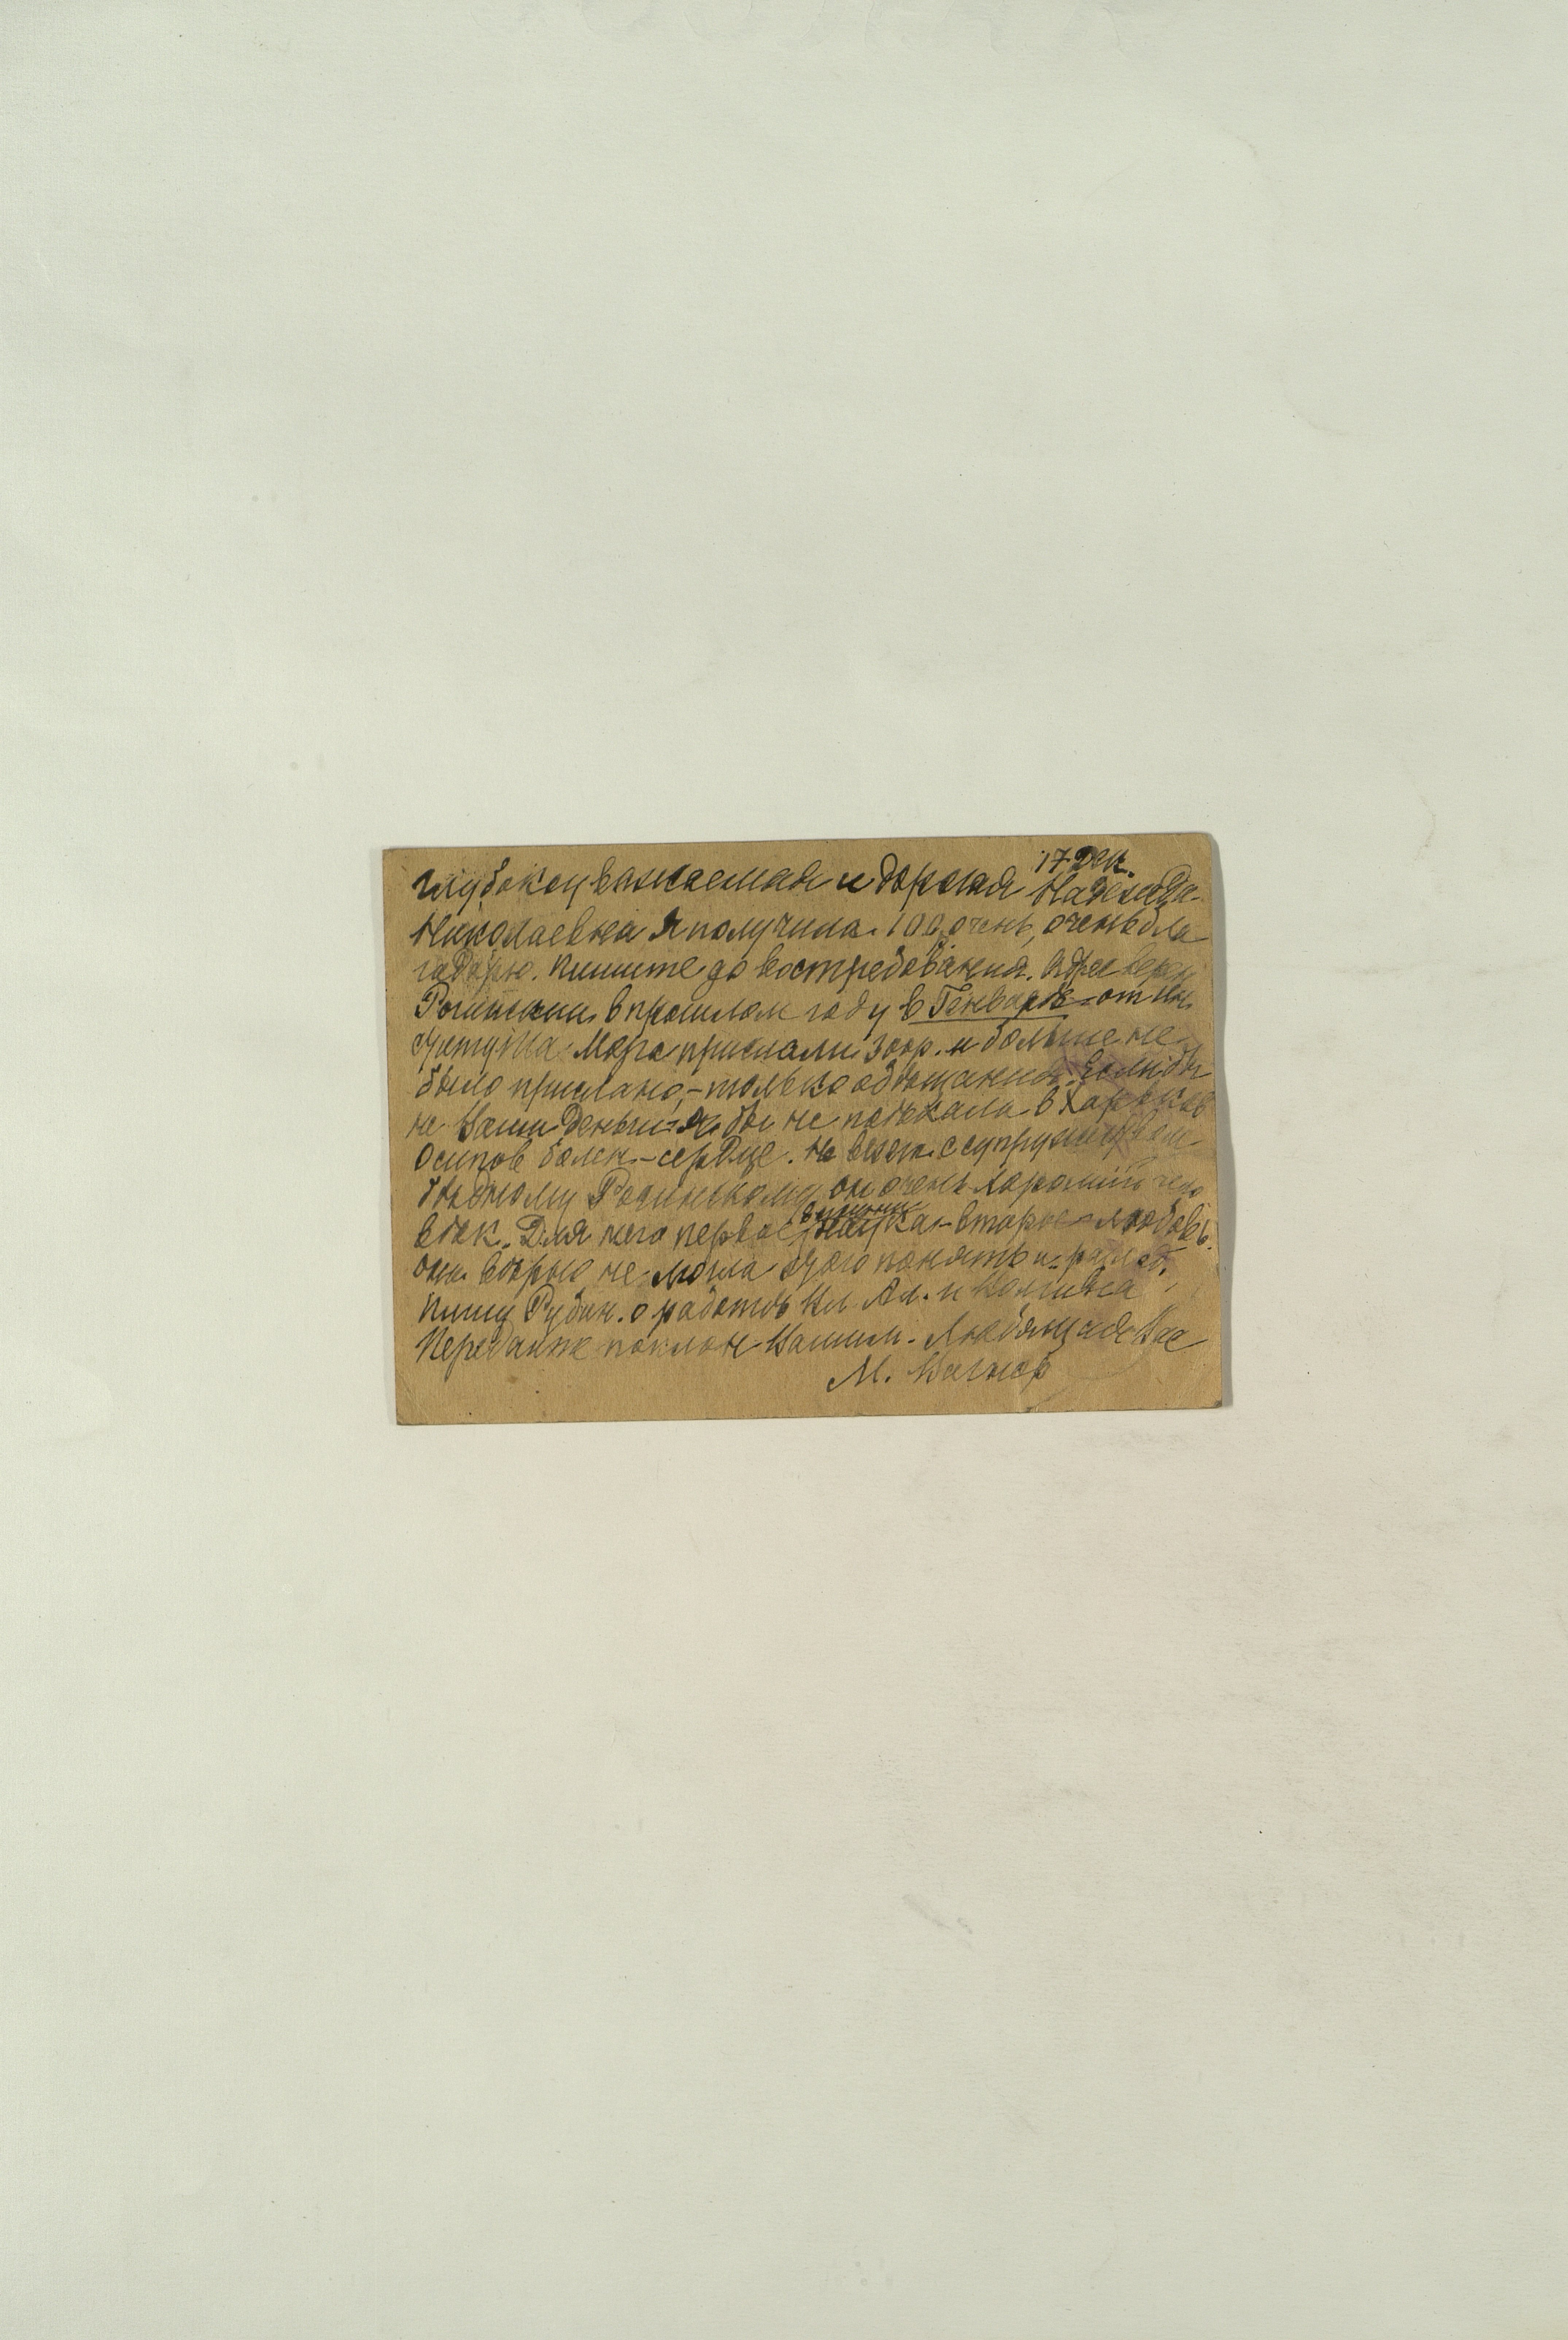 17 Дек.
глубокоуважаемая и дорогая Надежда
Николаевна Я получила 100 р. очень, очень бла
годарю. Пишите до востребования. Адрес верен
в прошлом году в Генваре - от Ин.
ститута Мара прислали 300 р. и больше не
было прислано, - только обѣщания. Если бы
не Ваши деньги - я бы не поѣхала в Харьков
Осипов болен - сердце. Не с супружеством
бѣдному Рогинскому, он очень хороший чело
вѣк. Для него первое наука - второе - любовь.
она вѣрно не могла этого понять и
пишу Рубин. о работѣ Ил. Ал. и
Передайте поклон Вашим. Любящая Вас
М. Вагнер